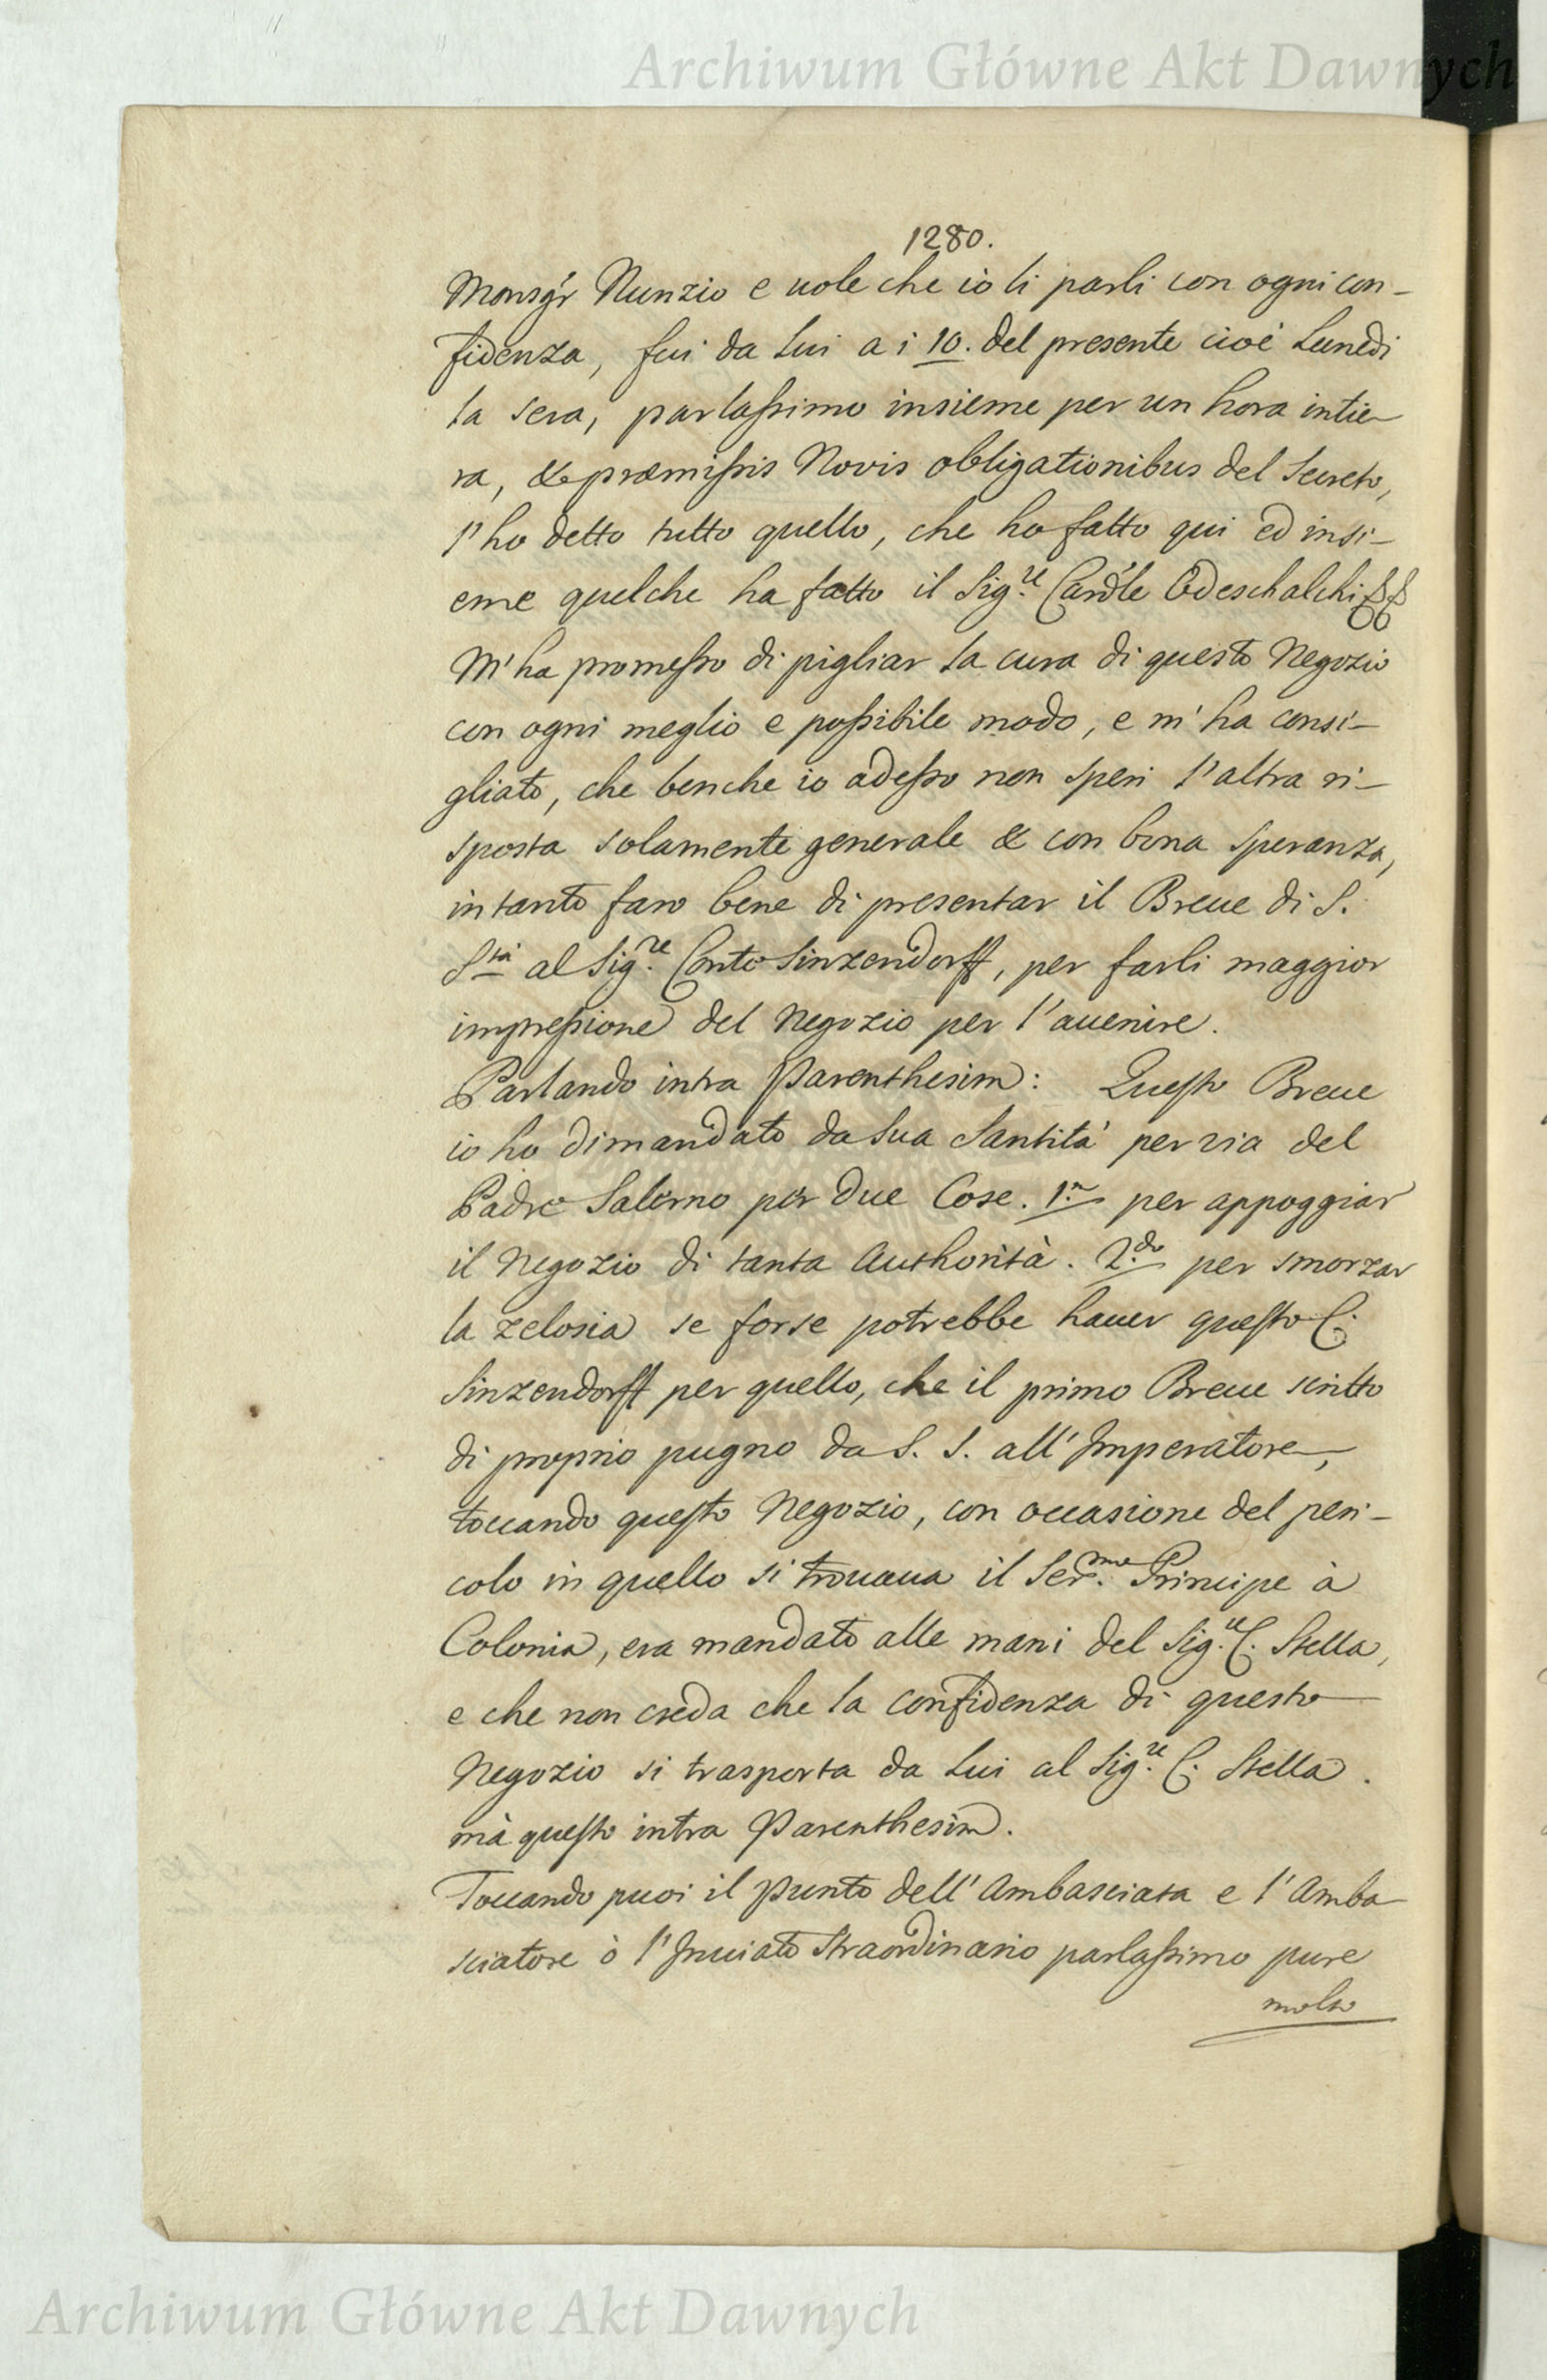 Archiwum Główne Akt Dawnych
1280.
Monsgr Nunzio e uole che io li parli con ogni con-
fidenza, fui da Lui a i 10. del presente cioè Lunedi
la sera, parlassimo insieme per un hora intie-
ra, & præmissis Novis obligationibus del Secreto,
l'ho detto tutto quello, che ho fatto qui ed insi-
eme quelche ha fatto il Sig.re Card'le Odeschalchi
M'ha promesso di pigliar la cura di questo Negozio
con ogni meglio e possibile modo, e m'ha consi-
gliato, che benche io adesso non speri l'altra ri-
sposta solamente generale & con bona speranza,
intanto faro bene di presentar il Breue di S.
S.tà al Sig.re Conte Sinzendorff, per farli maggior
impressione del Negozio per l'auenire.
Parlando intra Parenthesim: Questo Breue
io ho dimandato da Sua Santità per via del
Padre Salerno per due Cose. 1.° per appoggiar
il Negozio di tanta Authorità. 2.do per smorzar
la zelosia se forse potrebbe hauer questo C.
Sinzendorff per quello, che il primo Breue scritto
di proprio pugno da S. S. all'Imperatore,
toccando questo Negozio, con occasione del peri-
colo in quello si trouaua il Ser.mo Principe à
Colonia, era mandato alle mani del Sig.re C. Stella,
e che non creda che la confidenza di questo
Negozio si trasporta da Lui al Sig.re C. Stella.
mà questo intra Parenthesim.
Toccando puoi il Punto dell'Ambasciata e l'Amba-
sciatore ò l'Inuiato Straordinario parlassimo pure
molto
Archiwum Główne Akt Dawnych